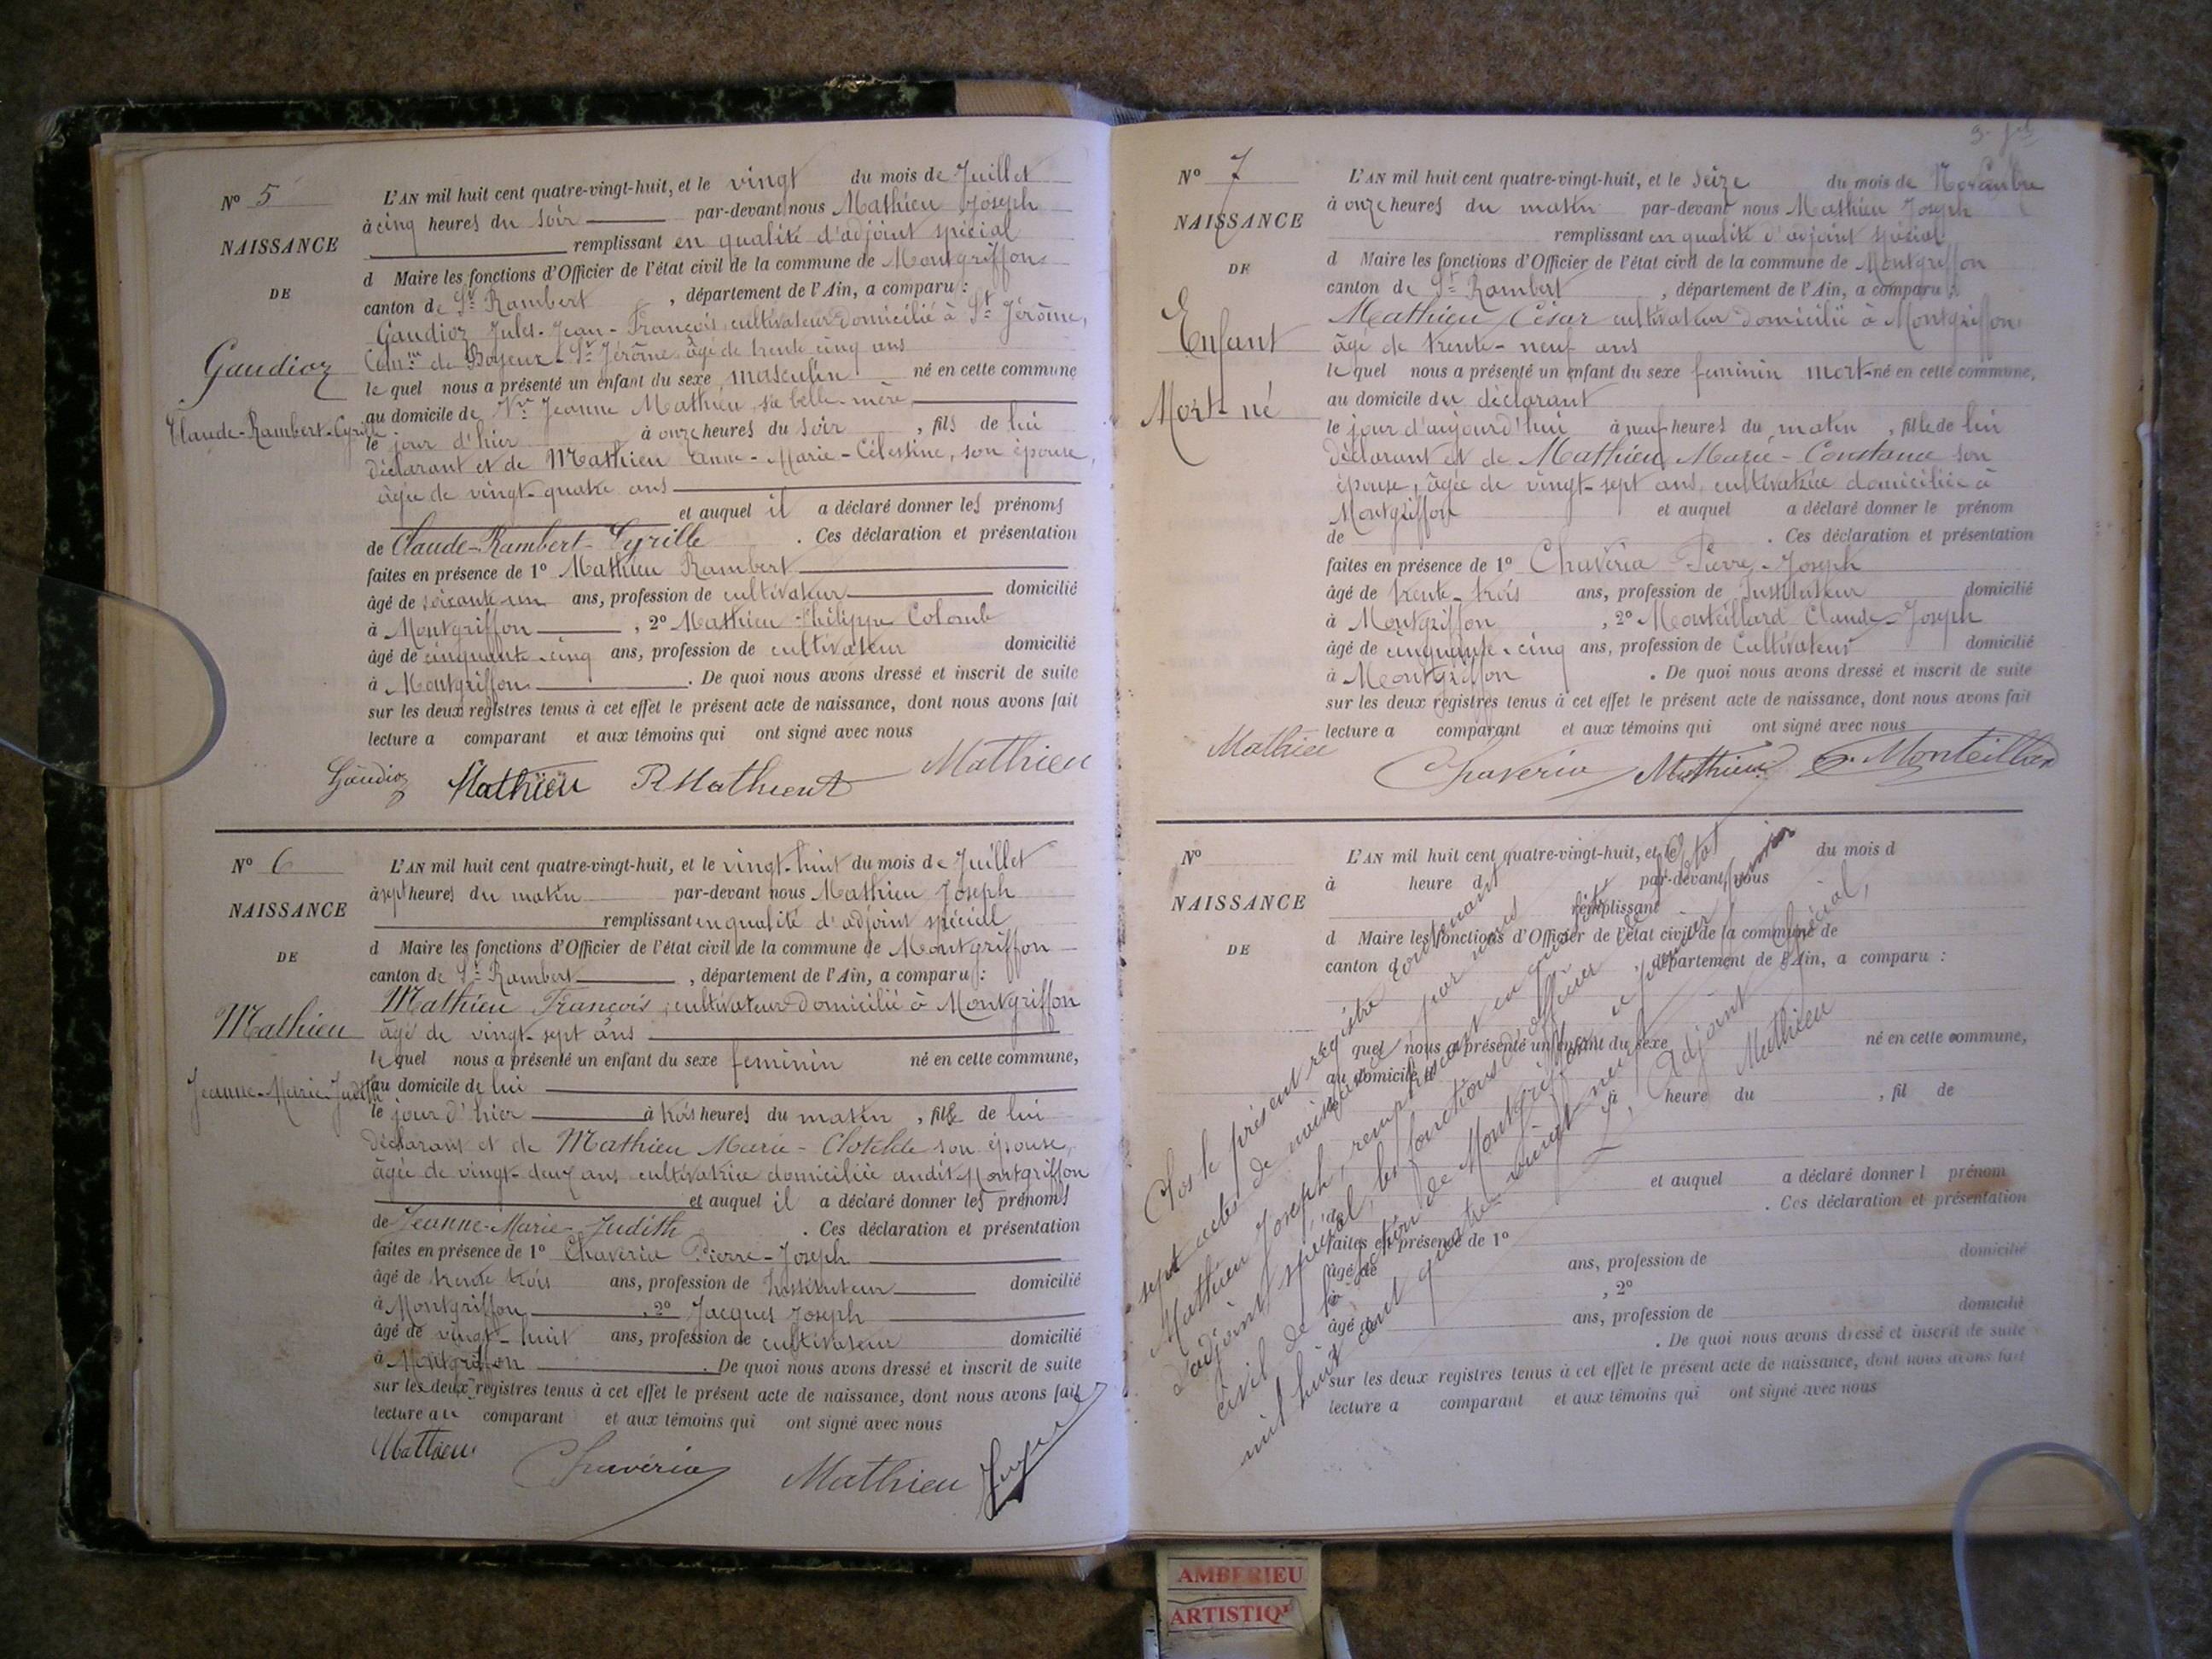 Nº 5
NAISSANCE
DE
Gaudioz
Claude-Rambert-Cyrille
L'AN mil huit cent quatre-vingt-huit, et le vingt du mois de Juillet
à cinq heures du soir par-devant nous Mathieu Joseph
remplissant en qualité d'adjoint spécial
d Maire les fonctions d'Officier de l'état civil de la commune de Montgriffon
canton de St Rambert, département de l'Ain, a comparu :
Gaudioz Jules-Jean-François, cultivateur domicilié à St Jérôme,
Comne de Boyeux-St Jérôme âgé de trente cinq ans
lequel nous a présenté un enfant du sexe masculin né en cette commune
au domicile de Vve Jeanne Mathieu, sa belle-mère,
le jour d'hier à onze heures du soir, fils de lui
déclarant et de Mathieu Anne-Marie-Célestine, son épouse,
âgée de vingt-quatre ans
et auquel il a déclaré donner les prénoms
de Claude-Rambert-Cyrille. Ces déclaration et présentation
faites en présence de 1º Mathieu Rambert
âgé de soixante-un ans, profession de cultivateur domicilié
à Montgriffon, 2º Mathieu Philippe Colomb
âgé de cinquante-cinq ans, profession de cultivateur domicilié
à Montgriffon. De quoi nous avons dressé et inscrit de suite
sur les deux registres tenus à cet effet le présent acte de naissance, dont nous avons fait
lecture a comparant et aux témoins qui ont signé avec nous
Gaudioz Mathieu R Mathieu Mathieu
Nº 6
NAISSANCE
DE
Mathieu
Jeanne-Marie-Judith
L'AN mil huit cent quatre-vingt-huit, et le vingt-huit du mois de Juillet
à sept heures du matin par-devant nous Mathieu Joseph
remplissant en qualité d'adjoint spécial
d Maire les fonctions d'Officier de l'état civil de la commune de Montgriffon
canton de St Rambert, département de l'Ain, a comparu :
Mathieu François, cultivateur domicilié à Montgriffon
âgé de vingt-sept ans
lequel nous a présenté un enfant du sexe feminin né en cette commune,
au domicile de lui
le jour d'hier à trois heures du matin, fille de lui
déclarant et de Mathieu Marie-Clotilde son épouse,
âgée de vingt-deux ans cultivatrice domiciliée audit Montgriffon
et auquel il a déclaré donner les prénoms
de Jeanne-Marie-Judith. Ces déclaration et présentation
faites en présence de 1º Chavéria Pierre-Joseph
âgé de trente trois ans, profession de Instituteur domicilié
à Montgriffon, 2º Jacques Joseph
âgé de vingt-huit ans, profession de cultivateur domicilié
à Montgriffon. De quoi nous avons dressé et inscrit de suite
sur les deux registres tenus à cet effet le présent acte de naissance, dont nous avons fait
lecture au comparant et aux témoins qui ont signé avec nous
Mathieu Chavéria Mathieu
Nº 7
NAISSANCE
DE
Enfant
Mort-né
L'AN mil huit cent quatre-vingt-huit, et le seize du mois de Novembre
à onze heures du matin par-devant nous Mathieu Joseph
remplissant en qualité d'adjoint spécial
d Maire les fonctions d'Officier de l'état civil de la commune de Montgriffon
canton de St Rambert, département de l'Ain, a comparu :
Mathieu César cultivateur domicilié à Montgriffon
âgé de trente-neuf ans
lequel nous a présenté un enfant du sexe feminin mort-né en cette commune,
au domicile du déclarant
le jour d'aujourd'hui à neuf heures du matin, fille de lui
déclarant et de Mathieu Marie-Constance son
épouse, âgée de vingt-sept ans, cultivatrice domiciliée à
Montgriffon et auquel a déclaré donner le prénom
de . Ces déclaration et présentation
faites en présence de 1º Chavéria Pierre-Joseph
âgé de trente-trois ans, profession de Instituteur domicilié
à Montgriffon, 2º Monteillard Claude-Joseph
âgé de cinquante-cinq ans, profession de Cultivateur domicilié
à Montgriffon. De quoi nous avons dressé et inscrit de suite
sur les deux registres tenus à cet effet le présent acte de naissance, dont nous avons fait
lecture a comparant et aux témoins qui ont signé avec nous
Mathieu Chaveria Mathieu Monteillard
Nº
NAISSANCE
DE
L'AN mil huit cent quatre-vingt-huit, et le du mois d
à heure d par-devant nous
remplissant
d Maire les fonctions d'Officier de l'état civil de la commune de
canton d , département de l'Ain, a comparu :
quel nous a présenté un enfant du sexe né en cette commune,
au domicile d
à heure du , fil de
et auquel a déclaré donner l prénom
de . Ces déclaration et présentation
faites en présence de 1º
âgé de ans, profession de domicilié
à , 2º
âgé d ans, profession de domicilié
. De quoi nous avons dressé et inscrit de suite
sur les deux registres tenus à cet effet le présent acte de naissance, dont nous avons fait
lecture a comparant et aux témoins qui ont signé avec nous
Clos le présent régistre contenant
sept actes de naissance par nous
Mathieu Joseph, remplissant en qualité
d'adjoint spécial, les fonctions d'officier de l'état
civil de la section de Montgriffon le premier janvier
mil huit cent quatre-vingt-neuf
L'Adjoint Spécial,
Mathieu
AMBERIEU
ARTISTIQ